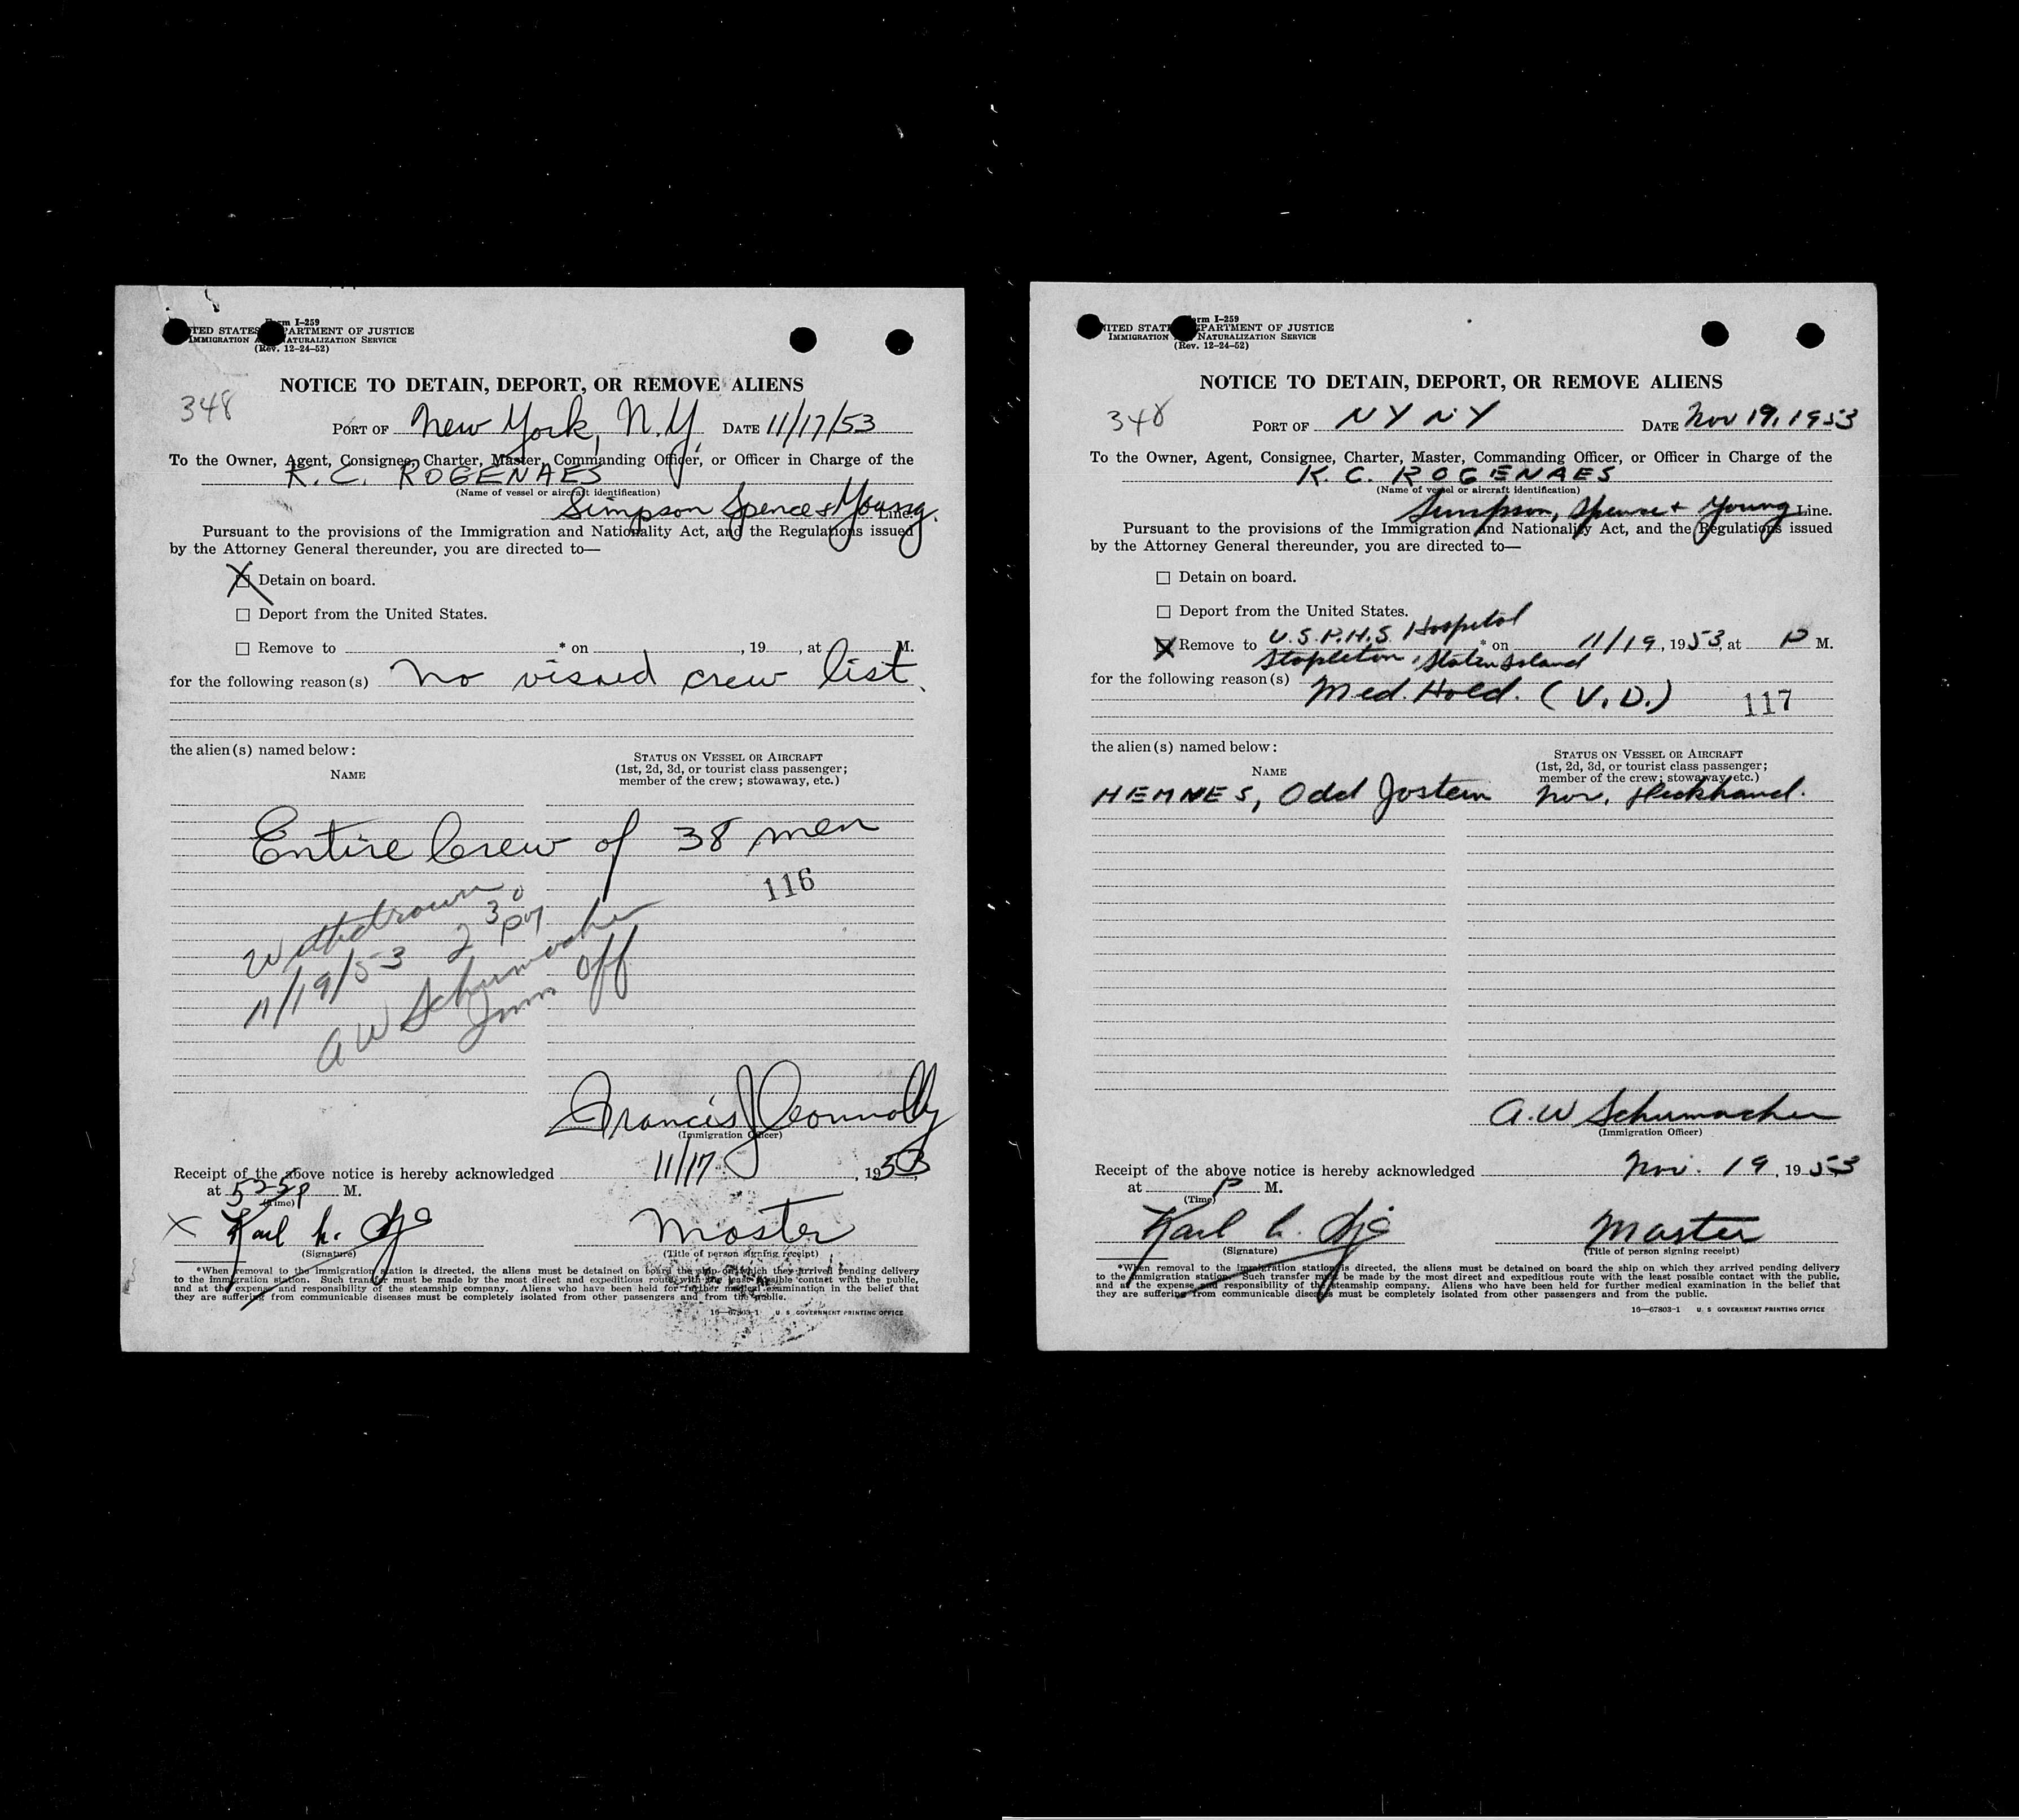 Form I-259
UNITED STATES DEPARTMENT OF JUSTICE
IMMIGRATION AND NATURALIZATION SERVICE
(Rev. 12-24-52)
NOTICE TO DETAIN, DEPORT, OR REMOVE ALIENS
348
PORT OF New York, N.Y. DATE 11/17/53
To the Owner, Agent, Consignee, Charter, Master, Commanding Officer, or Officer in Charge of the
K. C. ROGENAES
(Name of vessel or aircraft identification)
Simpson Spence & Young Line.
Pursuant to the provisions of the Immigration and Nationality Act, and the Regulations issued
by the Attorney General thereunder, you are directed to—
X Detain on board.
☐ Deport from the United States.
☐ Remove to * on , 19 , at M.
for the following reason(s) No visaed crew list.
the alien(s) named below:
NAME
STATUS ON VESSEL OR AIRCRAFT
(1st, 2d, 3d, or tourist class passenger;
member of the crew; stowaway, etc.)
Entire Crew of 38 men
116
Withdrawn
11/19/53 2 30 pm
A W Schumacher
Imm Off
Francis J Connolly
(Immigration Officer)
Receipt of the above notice is hereby acknowledged 11/17, 1953,
at 525p M.
(Time)
X Karl
Master
(Signature)
(Title of person signing receipt)
*When removal to the immigration station is directed, the aliens must be detained on board the ship on which they arrived pending delivery
to the immigration station. Such transfer must be made by the most direct and expeditious route with the least possible contact with the public,
and at the expense and responsibility of the steamship company. Aliens who have been held for further medical examination in the belief that
they are suffering from communicable diseases must be completely isolated from other passengers and from the public.
16—67803-1 U. S. GOVERNMENT PRINTING OFFICE
Form I-259
UNITED STATES DEPARTMENT OF JUSTICE
IMMIGRATION AND NATURALIZATION SERVICE
(Rev. 12-24-52)
NOTICE TO DETAIN, DEPORT, OR REMOVE ALIENS
348
PORT OF NY NY DATE Nov 19, 1953
To the Owner, Agent, Consignee, Charter, Master, Commanding Officer, or Officer in Charge of the
K. C. ROGENAES
(Name of vessel or aircraft identification)
Simpson, Spense + Young Line.
Pursuant to the provisions of the Immigration and Nationality Act, and the Regulations issued
by the Attorney General thereunder, you are directed to—
☐ Detain on board.
☐ Deport from the United States.
X Remove to U.S.P.H.S. Hospital * on 11/19, 1953, at P M.
Stapleton, Staten Island
for the following reason(s)
Med. Hold. (V.D.)
117
the alien(s) named below:
NAME
STATUS ON VESSEL OR AIRCRAFT
(1st, 2d, 3d, or tourist class passenger;
member of the crew; stowaway, etc.)
HEMNES, Odd Jostein Nor. Deckhand.
A.W Schumacher
(Immigration Officer)
Receipt of the above notice is hereby acknowledged Nov. 19, 1953
at P M.
(Time)
Karl
Master
(Signature)
(Title of person signing receipt)
*When removal to the immigration station is directed, the aliens must be detained on board the ship on which they arrived pending delivery
to the immigration station. Such transfer must be made by the most direct and expeditious route with the least possible contact with the public,
and at the expense and responsibility of the steamship company. Aliens who have been held for further medical examination in the belief that
they are suffering from communicable diseases must be completely isolated from other passengers and from the public.
16—67803-1 U. S GOVERNMENT PRINTING OFFICE